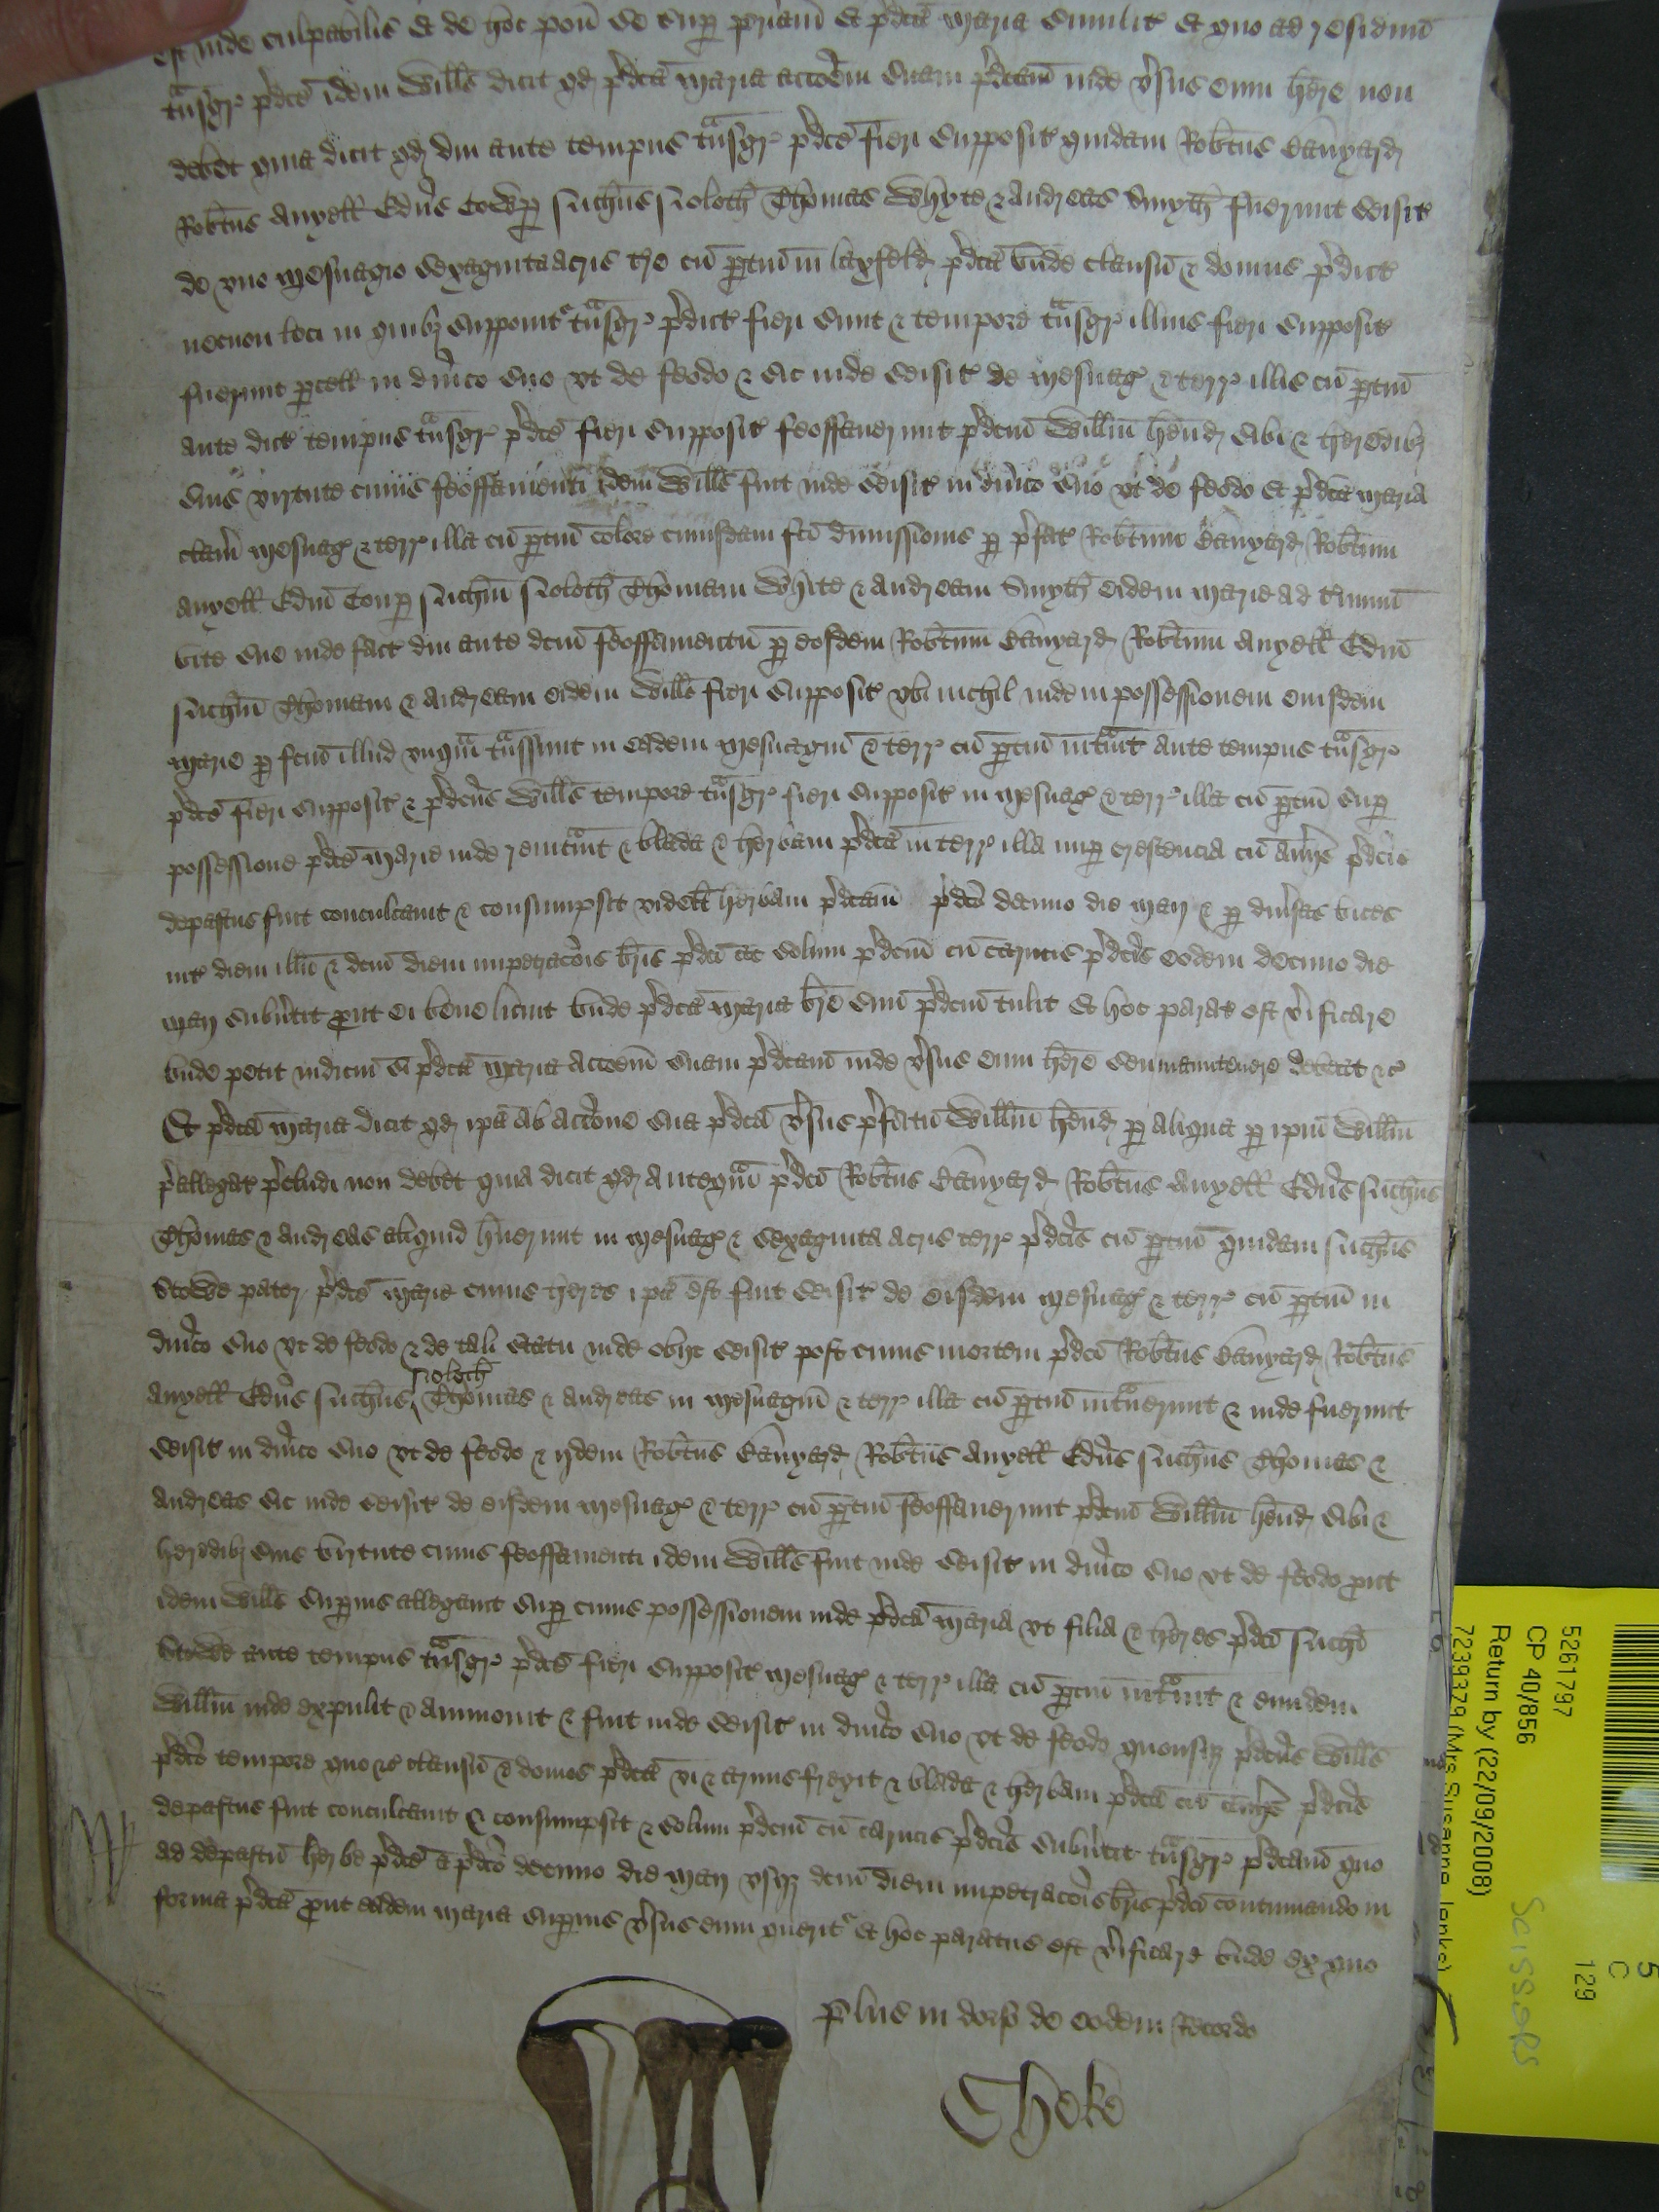 est inde culpabilis Et de hoc pon̄ se sup̱ p̱riam Et p̱dca Maria similit̉ Et quo ad residuū
t̃nsgr̉ p̱dce idem Wills dicit qd p̱dca Maria accoem suam p̱dcam inde v̱sus eum h̄ere non
debet quia dicit qd diu ante tempus t̃nsgr̉ p̱dce fieri supposit̉ quidam Rob̄tus Banyard
Rob̄tus Anyell Edūs Cowp̱ Nich̄us Noloth Thomas Whyte & Andreas Smyth fuerunt seisit̉
de vno mesuagio sexaginta acris tr̄e cū p̱tin̄ in laxfeld p̱dca vnde clausū & domus p̱dict̉
necnon loci in quib suppoit̉ t̃nsgr̉ p̱dict̉ fieri sunt & tempore t̃nsgr̉ illius fieri supposit̉
fuerunt p̱cell in dn̄ico suo vt de feodo & sic inde seisit̉ de mesuag̉ & terr̉ illis cū p̱tin̄
ante dict̉ tempus t̃nsgr̉ p̱dce fieri supposit̉ feoffauerunt p̱dcm̄ Willm̄ hend sibi & heredib
suis virtute cuius feoffamenti idem Wills fuit inde seisit̉ in dn̄ico suo vt de feodo Et p̱dca Maria
clam̄ mesuag̉ & terr̉ illa cū p̱tin̄ colore cuiusdam fci dimissionis p̱ p̱fat̉ Rob̄tum Banyard Rob̄tum
Anyell Edm̄ Coup̱ Nich̄m Noloth Thomam White & Andream Smyth eidem Marie ad t̄minū
vite sue inde fact̉ diu ante dcm̄ feoffamentū p̱ eosdem Rob̄tum Banyard Rob̄tum Anyell Edm̄
Nich̄m Thomam & Andream eidem Willo fieri supposit̉ vbi nichil inde in possessionem eiusdem
Marie p̱ fcm̄ illud vnqm̄ t̃nssiuit in eadem mesuagiū & terr̉ cū p̱tin̄ int̉uit ante tempus t̃nsgr̉
p̱dce fieri supposit̉ & p̱dcus Wills tempore t̃nsgr̉ fieri supposit̉ in mesuag̉ & terr̉ illa cū p̱tin̄ sup̱
possessione p̱dce Marie inde reint̉uit & blada & herbam p̱dca in terr̉ illa nup̱ crescencia cū au̱ijs p̱dcis
depastus fuit conculcauit & consumpsit videlt herbam p̱dcam p̱dco decimo die Maij & p̱ diu̱sas vices
int̉ diem illū & dcm̄ diem impetracois br̄is p̱dci ac solum p̱dcm̄ cū carucis p̱dcis eodem decimo die
Maij subu̱tit p̱ut ei bene licuit vnde p̱dca Maria br̄e suū p̱dcm̄ tulit Et hoc parat̉ est v̱ificare
vnde petit iudiciū si p̱dca Maria accoem suam p̱dcam inde v̱sus eum h̄ere seu manutenere debeat &c
Et p̱dca Maria dicit qd ip̄a ab accone sua p̱dca v̱sus p̱fatū Willm̄ hend p̱ aliqua p̱ ip̄m Willm̄
p̱allegat̉ p̱cludi non debet quia dicit qd anteqm̄ p̱dci Rob̄tus Banyard Rob̄tus Anyell Edūs Nich̄us
Thomas & Andreas aliquid h̄uerunt in mesuag̉ & sexaginta acris terr̉ p̱dcis cū p̱tin̄ quidam Nich̄us
Stowe pater p̱dce Marie cuius heres ip̄a est fuit seisit̉ de eisdem mesuag̉ & terr̉ cū p̱tin̄ in
dn̄ico suo vt de feodo & de tali statu inde obijt seisit̉ post cuius mortem p̱dci Rob̄tus Banyard Rob̄tus
Anyell Edūs Nich̄us Noloth Thomas & Andreas in mesuagiū & terr̉ illa cū p̱tin̄ int̉uerunt & inde fuerunt
seisit̉ in dn̄ico suo vt de feodo & ijdem Rob̄tus Banyard Rob̄tus Anyell Edūs Nich̄us Thomas &
Andreas sic inde seisit̉ de eisdem mesuag̉ & terr̉ cū p̱tin̄ feoffauerunt p̱dcm̄ Willm̄ hend sibi &
heredib suis virtute cuius feoffamenti idem Wills fuit inde seisit̉ in dn̄ico suo vt de feodo p̱ut
idem Wills sup̱ius allegauit sup̱ cuius possessionem inde p̱dca Maria vt filia & heres p̱dci Nichi
Stowe ante tempus t̃nsgr̉ p̱dce fieri supposit̉ mesuag̉ & terr̉ illa cū p̱tin̄ int̉uit & eundem
Willm̄ inde expulit & ammouit & fuit inde seisit̉ in dn̄ico suo vt de feodo quousq p̱dcus Wills
p̱dco tempore quo &c clausū & domos p̱dca vi & armis fregit & blada & herbam p̱dca cū au̱ijs p̱dcis
depastus fuit conculcauit & consumpsit & solum p̱dcm̄ cū carucis p̱dcis subu̱tit t̃nsgr̉ p̱dcam quo
ad depastū herbe p̱dce a p̱dco decimo die Maij vsq dcm̄ diem impetracois br̄is p̱dci continuando in
forma p̱dca p̱ut eadem Maria sup̱ius v̱sus eum querit̉ Et hoc paratus est v̱ificare vnde ex quo
Plus in dorso de eodem Recordo
Choke
5261797
CP 40/856
129
Return by (22/09/2008)
7239379 (Mrs Susanne Jenks)
Scissors